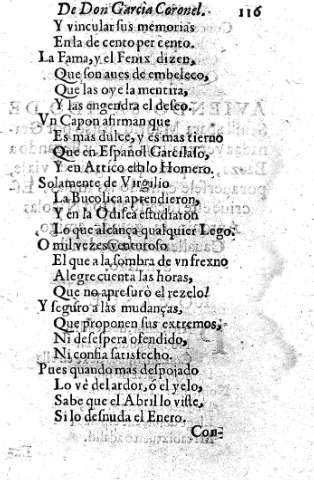 De Don Garcia Coronel. 116
Y vincular sus memorias
En la de cento por cento.
La Fama, y el Fenix dizen,
Que son aues de embeleco,
Que las oye la mentira,
Y las engendra el deseo.
Vn Capon afirman que
Es mas dulce, y es mas tierno
Que en Español Garcilaso,
Y en Attico estilo Homero.
Solamente de Virgilio
La Bucolica aprendieron,
Y en la Odisea estudiaron
Lo que alcança qualquier Lego.
O mil vezes venturoso
El que a la sombra de vn frexno
Alegre cuenta las horas,
Que no apresurò el rezelo!
Y seguro a las mudanças,
Que proponen sus extremos,
Ni desespera ofendido,
Ni confia satisfecho.
Pues quando mas despojado
Lo vè del ardor, ó el yelo,
Sabe que el Abril lo viste,
Si lo desnuda el Enero.
Con-